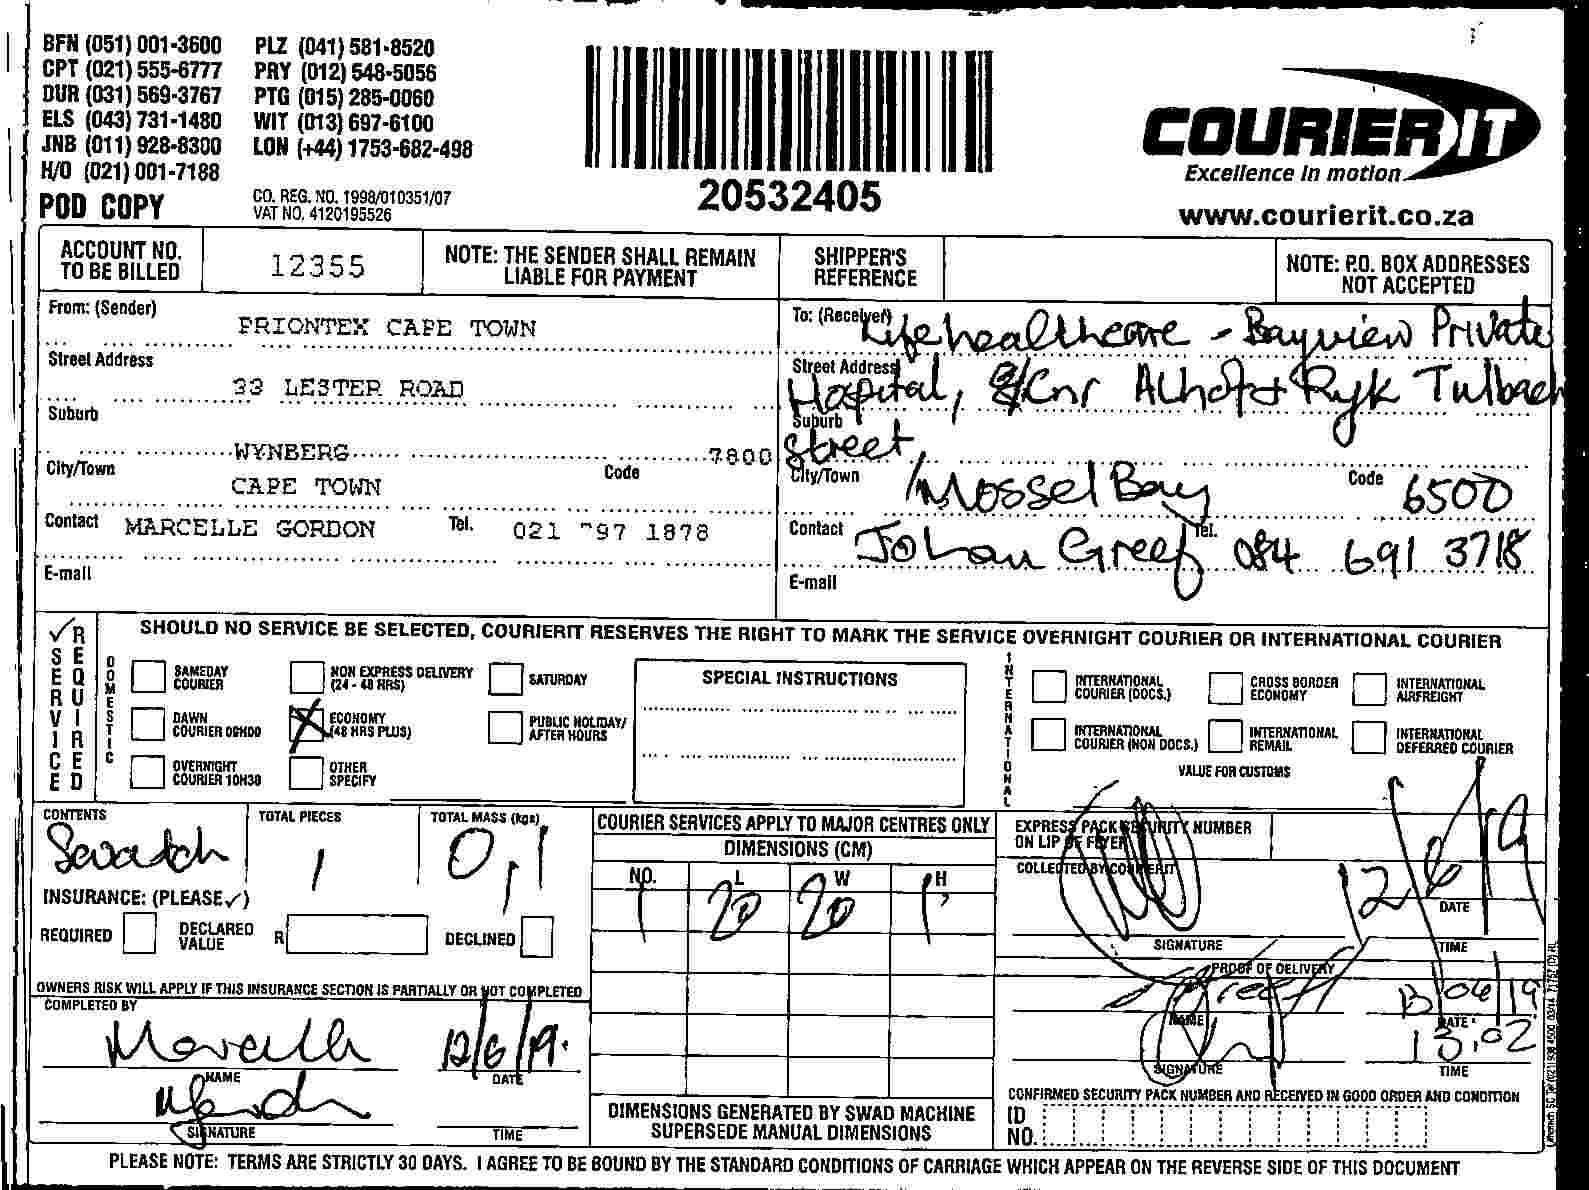 BFN (051) 001-3600 PLZ (041) 581-8520
CPT (021) 555-6777 PRY (012) 548-5056
DUR (031) 569-3767 PTG (015) 285-0060
ELS (043) 731-1480 WIT (013) 697-6100
JNB (011) 928-8300 LON (+44) 1753-682-498
H/O (021) 001-7188
POD COPY
CO. REG. NO. 1998/010351/07
VAT NO. 4120195526
20532405
COURIER IT
Excellence in motion
www.courierit.co.za
ACCOUNT NO. TO BE BILLED 12355
NOTE: THE SENDER SHALL REMAIN LIABLE FOR PAYMENT
SHIPPER'S REFERENCE
NOTE: P.O. BOX ADDRESSES NOT ACCEPTED
From: (Sender) PRIONTEX CAPE TOWN
Street Address 33 LESTER ROAD
Suburb WYNBERG 7800
City/Town CAPE TOWN Code
Contact MARCELLE GORDON Tel. 021 797 1878
E-mail
To: (Receiver) Lifehealthcare - Bayview Private
Street Address Hospital, Cnr Alhof & Ryk Tulbach
Suburb Street,
City/Town Mossel Bay Code 6500
Contact Johan Greef Tel. 084 691 3718
E-mail
✓ SERVICE REQUIRED
SHOULD NO SERVICE BE SELECTED, COURIERIT RESERVES THE RIGHT TO MARK THE SERVICE OVERNIGHT COURIER OR INTERNATIONAL COURIER
DOMESTIC
SAMEDAY COURIER
NON EXPRESS DELIVERY (24 - 48 HRS)
SATURDAY
DAWN COURIER 09H00
X ECONOMY (48 HRS PLUS)
PUBLIC HOLIDAY/ AFTER HOURS
OVERNIGHT COURIER 10H30
OTHER SPECIFY
SPECIAL INSTRUCTIONS
INTERNATIONAL
INTERNATIONAL COURIER (DOCS.)
CROSS BORDER ECONOMY
INTERNATIONAL AIRFREIGHT
INTERNATIONAL COURIER (NON DOCS.)
INTERNATIONAL REMAIL
INTERNATIONAL DEFERRED COURIER
VALUE FOR CUSTOMS
CONTENTS
TOTAL PIECES 1
TOTAL MASS (kgs) 0,1
INSURANCE: (PLEASE ✓)
REQUIRED
DECLARED VALUE R
DECLINED
OWNERS RISK WILL APPLY IF THIS INSURANCE SECTION IS PARTIALLY OR NOT COMPLETED
COMPLETED BY
NAME
12/6/19. DATE
SIGNATURE
TIME
COURIER SERVICES APPLY TO MAJOR CENTRES ONLY
DIMENSIONS (CM)
NO. L W H
1 20 20 1
DIMENSIONS GENERATED BY SWAD MACHINE SUPERSEDE MANUAL DIMENSIONS
EXPRESS PACK SECURITY NUMBER ON LIP OF FLYER
COLLECTED BY COURIERIT
12/6/19 DATE
SIGNATURE
TIME
PROOF OF DELIVERY
Greeff 13/06/19
NAME
DATE
13:02
SIGNATURE
TIME
CONFIRMED SECURITY PACK NUMBER AND RECEIVED IN GOOD ORDER AND CONDITION
ID NO.
PLEASE NOTE: TERMS ARE STRICTLY 30 DAYS. I AGREE TO BE BOUND BY THE STANDARD CONDITIONS OF CARRIAGE WHICH APPEAR ON THE REVERSE SIDE OF THIS DOCUMENT